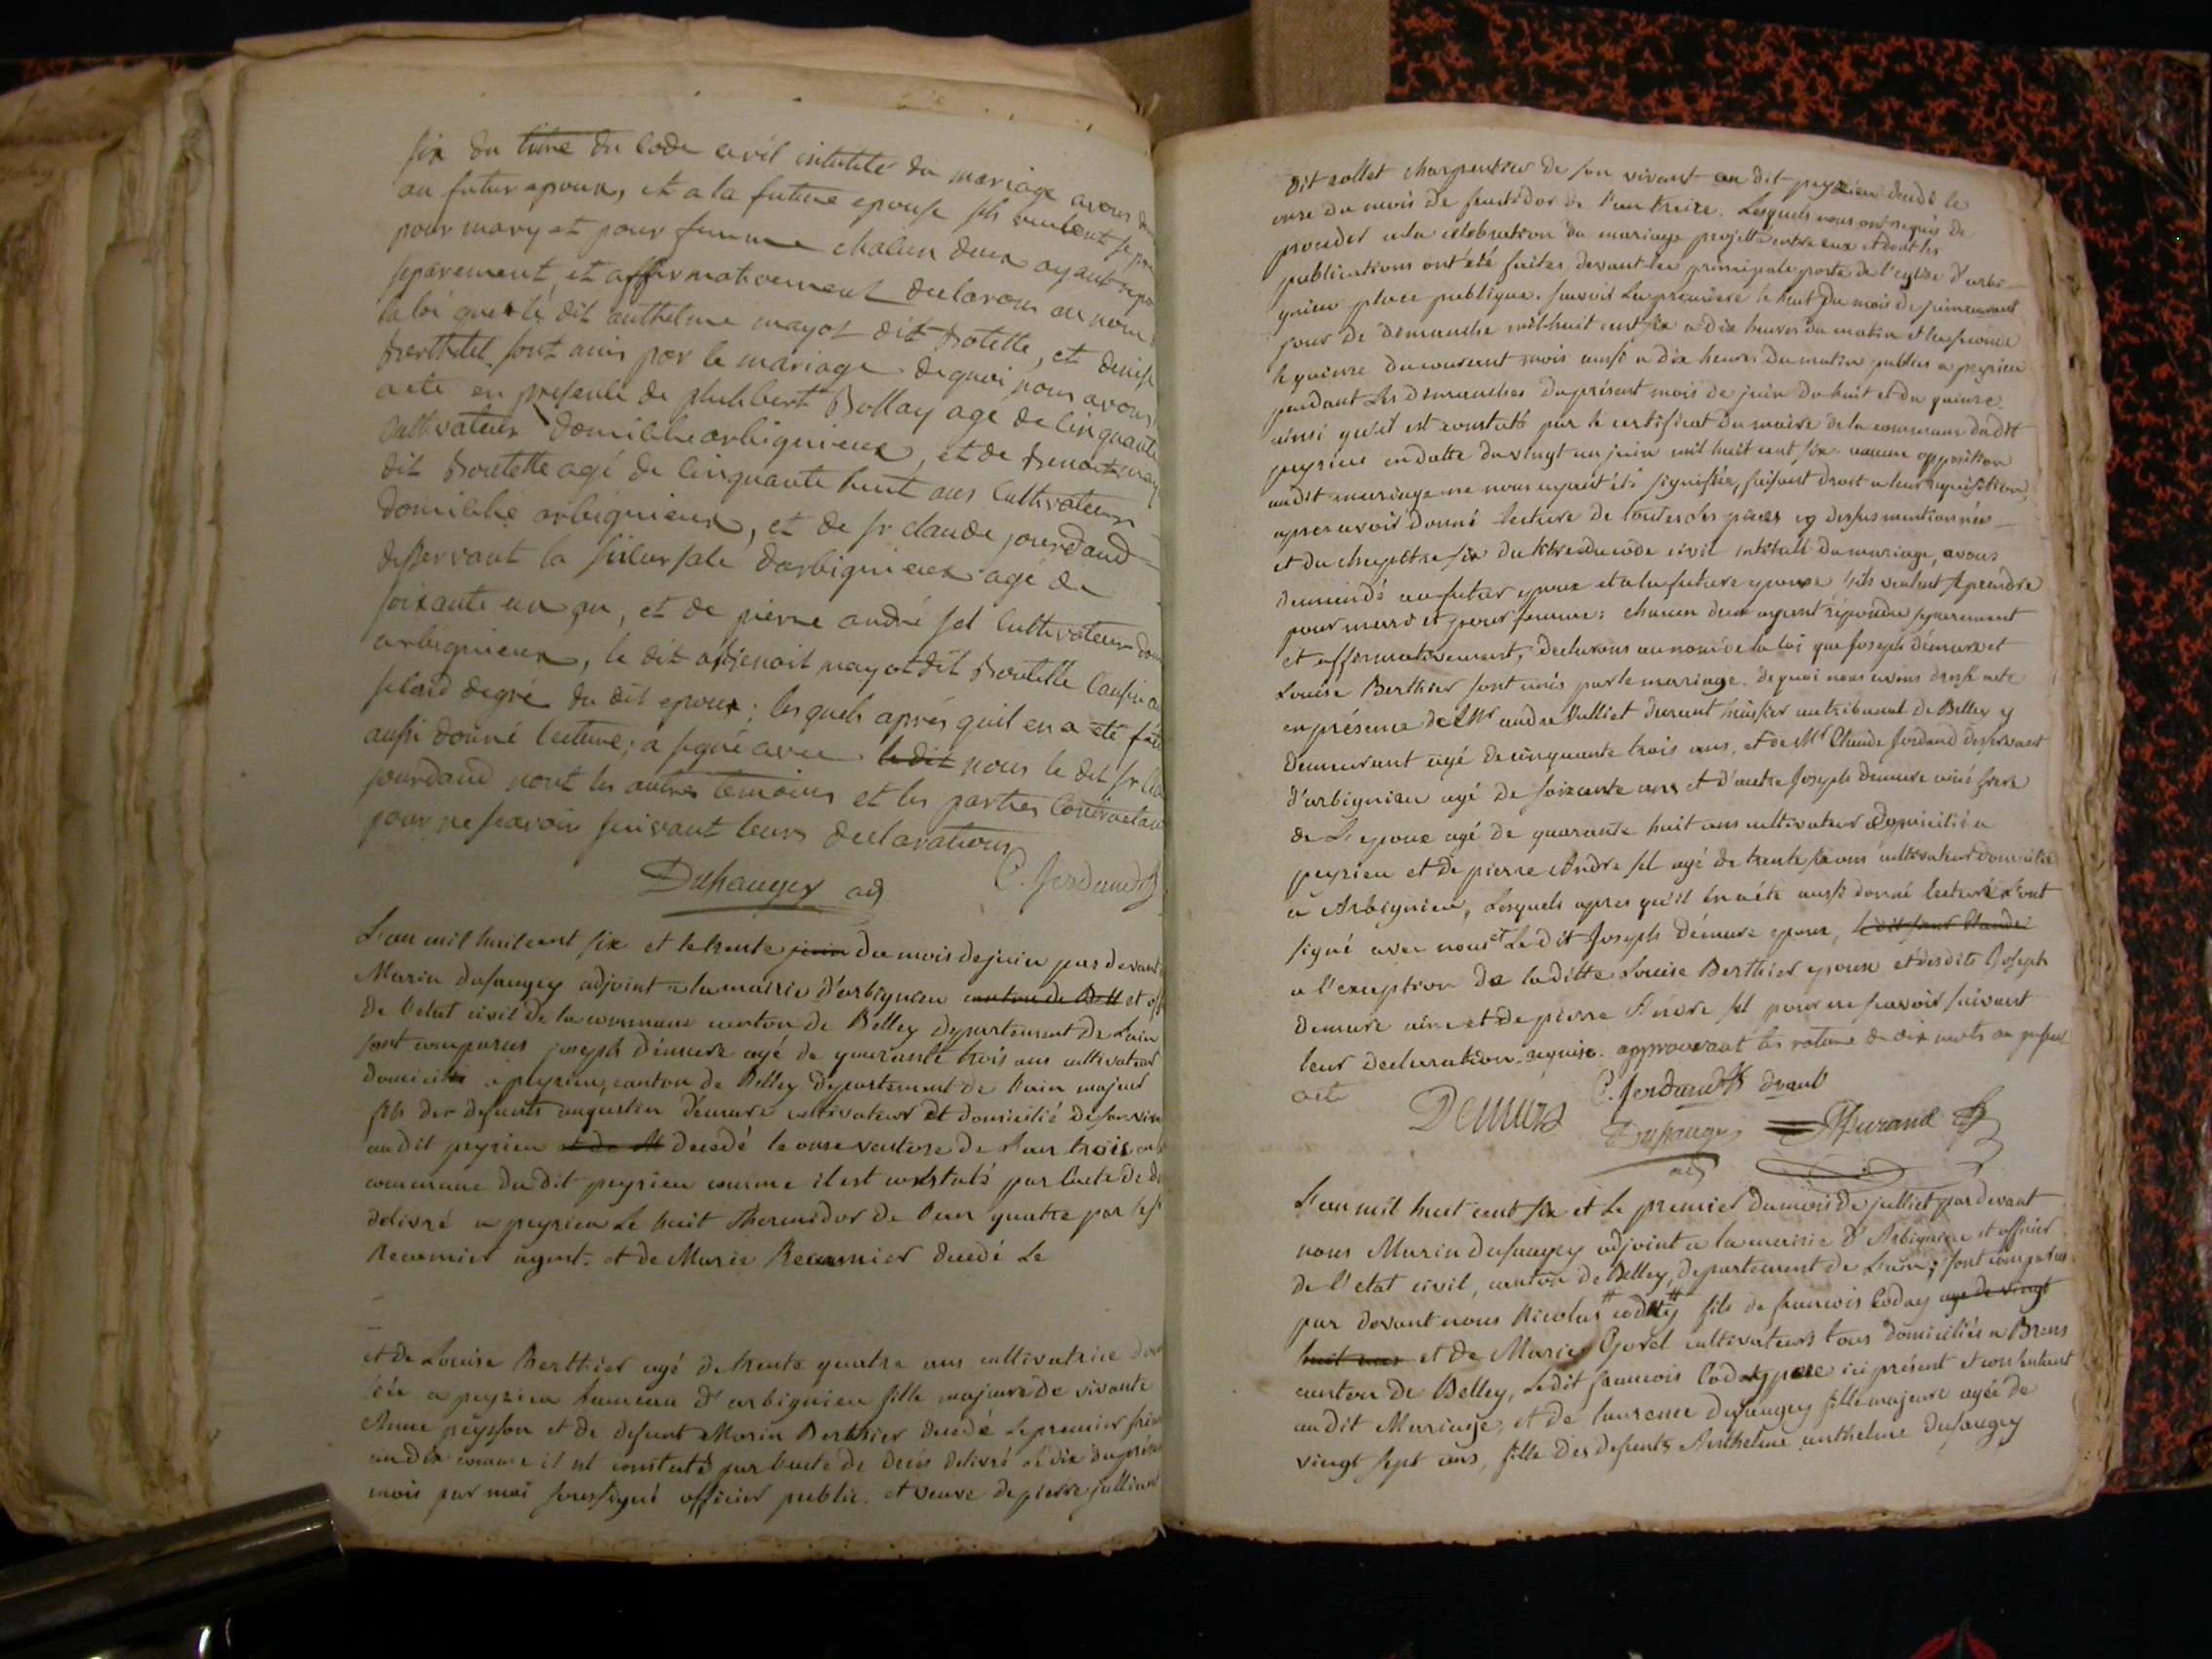 six du titre du code civil intitulé du mariage avons
au futur epoux, et a la future epouse sils veulent se
pour mary et pour femme chacun deux ayant
separement, et affirmativement declarons au nom
la loi que le dit anthelme mayot dit Botette, et denise
Berthelet sont unis par le mariage. de quoi nous avons
acte en presence de philibert Bollay age de cinquante
cultivateur domicilie arbignieux, et de Benoit may
dit Boutette agé de cinquante huit ans cultivateur
domicilié arbignieux, et de sr claude jourdand
desservant la succursale darbignieux agé de
soixante un an, et de pierre andré sel cultivateur dom
arbignieux, le dit benoit mayot dit Boutette cousin au
segond degré du dit epoux; les quels après quil en a eté fait
aussi donné lecture; a signé avec le dit nous le dit sr cla
jourdand nont les autres temoins et les parties contractan
pour ne scavoir suivant leurs declarations
Dufaugey adj C. Jordand
L'an mil huit cent six et le trente juin du mois de juin par devant
Marin dufaugey adjoint a la mairie d'arbignieu canton de Bell et off
de l'etat civil de la commune canton de Belley departement de Lain
sont comparus joseph démure agé de quarante trois ans cultivateur
domicilié a peyrieu, canton de Belley departement de Lain majeur
fils des defunts augustin démure cultivateur et domicilié de son viva
au dit peyrieu et de M decedé le onze ventose de l'an trois
commune du dit peyrieu comme il est constaté par l'acte de de
delivré a peyrieu Le huit Thermidor de l'an quatre par
Recamier agent. et de Marie Recamier decedé Le
et de Louise Berthier agé de trente quatre ans cultivatrice do
ciée a peyzieu hameau d'arbignieu fille majeure de vivante
Anne peysson et de defunt Marin Berthier decedé le premier
an dix comme il est constaté par l'acte de decès delivré le dix du présen
mois par moi soussigné officier public. et veuve de pierre jullien
dit collet charpentier de son vivant au dit peyzieu decedé le
onze du mois de fructidor de l'an treize. Lesquels nous ont requis de
proceder a la celebration du mariage projetté entre eux et dont les
publications ont été faites devant la principale porte de l'eglise d'arbi-
gnieu place publique. sçavoir La premiere le huit du mois de juin courant
jour de dimanche mil huit cent six a dix heures du matin et la seconde
le quinze du courant mois aussi a dix heures du matin publies a peyrieu
pendant Les dimanches du présent mois de juin du huit et du quinze.
ainsi qu'il est constaté par le certificat du maire de la commune dudit
peyrieu en datte du vingt un juin mil huit cent six. aucune opposition
audit mariage ne nous ayant été signifiée, faisant droit a leur requisition,
apres avoir donné lecture de toutes les pièces cy dessus mentionnées
et du chapitre six du titre du code civil intitulé du mariage, avons
demandé au futur epoux et a la future epouse s'ils veulent se prendre
pour mari et pour femme; chacun deux ayant répondu separement
et affirmativement, declarons au nom de la loi que joseph démure et
Louise Berthier sont unis par le mariage. de quoi nous avons dressé acte
en présence de Mr andre Julliet durant huissier au tribunal de Belley y
demeurant agé de cinquante trois ans, et de Mr Claude Jordand desservant
d'arbignieu agé de soixante ans et d'autre Joseph Demure ainé frere
de L'epoux agé de quarante huit ans cultivateur domicilié a
peyrieu et de pierre Andre sel agé de trente ans cultivateur domicilié
a Arbignieu, Lesquels apres qu'il en a été aussi donné lecture L'ont
signé avec nous et Le dit Joseph Démure epoux, le dit sieur Claude
a l'exception de laditte Louise Berthier epouse et desdits Joseph
demure ainé et de pierre Andre sel pour ne scavoir suivant
leur declaration requise. approuvant les rature de dix mots au present
acte
Demure C. Jordand dsvt
Dufaugey Durand
adj
L'an mil huit cent six et Le premier du mois de julliet par devant
nous Marin dufaugey adjoint a la mairie d'Arbignieu et officier
de l'etat civil, canton de Belley, departement de L'ain; sont comparus
par devant nous Nicolas coday fils de francois Coday age de vingt
huit ans et de Marie Gorel cultivateurs tous domiciliés a Brens
canton de Belley, Ledit francois Coday pere ici présent et consentant
au dit Mariage, et de laurence dufaugey fille majeure agée de
vingt sept ans, fille des defunts Anthelme anthelme dufaugey